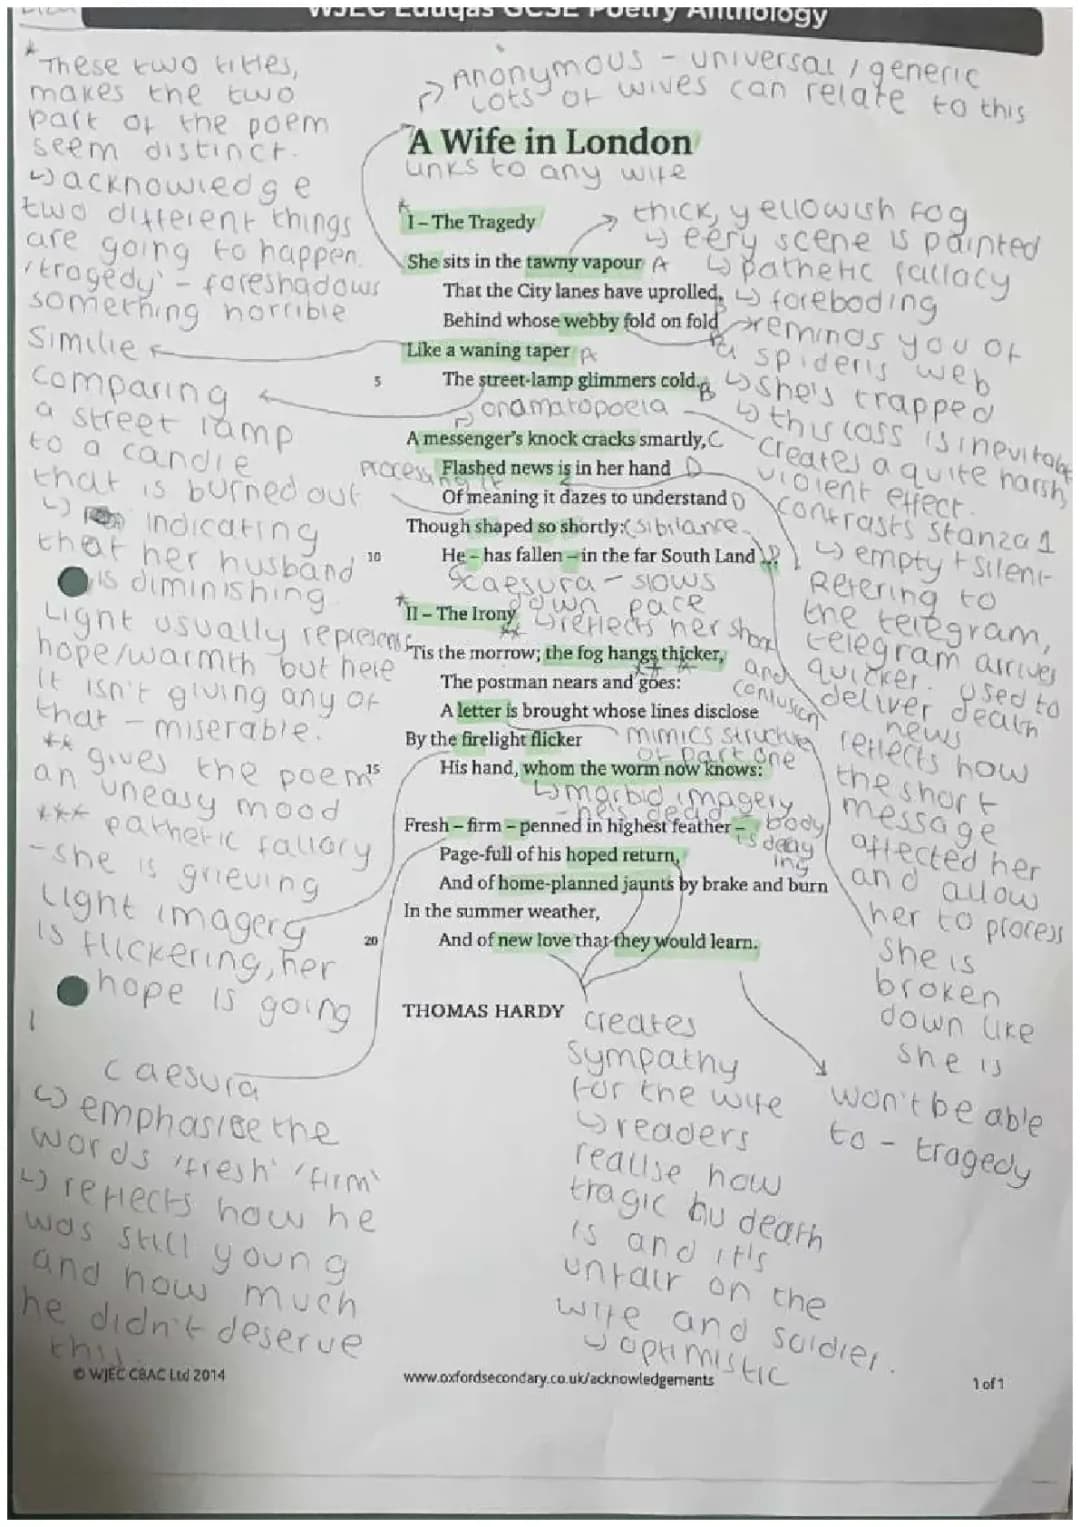 WJEC Eduqas GCSE Poetry Anthology
* These two titles,
makes the two
part of the poem
seem distinct.
↳ acknowledge
two different things
are going to happen.
'tragedy' - foreshadows
something horrible
Similie
comparing
a street lamp
to a candle
that is burned out
↳ indicating
that her husband
is diminishing.
Light usually represents
hope/warmth but here
it isn't giving any of
that - miserable.
** gives the poem
an uneasy mood
*** pathetic fallory
- she is grieving
Light imagery
is flickering, her
hope is going
caesura
↳ emphasise the
words 'fresh' 'firm'
↳ reflects how he
was still young
and how much
he didn't deserve
this.
Anonymous - universal / generic
Lots of wives can relate to this
A Wife in London
Links to any wife
* I – The Tragedy
She sits in the tawny vapour A
That the City lanes have uprolled, B
Behind whose webby fold on fold B
Like a waning taper A
5 The street-lamp glimmers cold. B
onamatopoeia
A messenger's knock cracks smartly, C
Flashed news is in her hand D
processing it
Of meaning it dazes to understand D
Though shaped so shortly: (sibilance
10 He – has fallen – in the far South Land . . .
caesura - slows
down pace
↳ reflects her shock
and
confusion
* II – The Irony
**
'Tis the morrow; the fog hangs thicker,
***
The postman nears and goes:
A letter is brought whose lines disclose
By the firelight flicker
mimics structure
of part one
15 His hand, whom the worm now knows:
↳ morbid imagery
- he's dead - body
is decaying
Fresh – firm – penned in highest feather –
Page-full of his hoped return,
And of home-planned jaunts by brake and burn
In the summer weather,
20 And of new love that they would learn.
THOMAS HARDY
creates
sympathy
for the wife
↳ readers
realise how
tragic his death
is and it's
unfair on the
wife and soldier.
↳ optimistic
thick, yellowish fog
↳ eery scene is painted
↳ pathetic fallacy
↳ foreboding
reminds you of
a spider's web
↳ she's trapped
↳ this loss is inevitable
creates a quite harsh,
violent effect.
contrasts stanza 1
↳ empty + silent
Refering to
the telegram,
telegram arrives
quicker. used to
deliver death
news
reflects how
the short
message
affected her
and allow
her to process
she is
broken
down like
she is
won't be able
to - tragedy
© WJEC CBAC Ltd 2014
www.oxfordsecondary.co.uk/acknowledgements
1 of 1